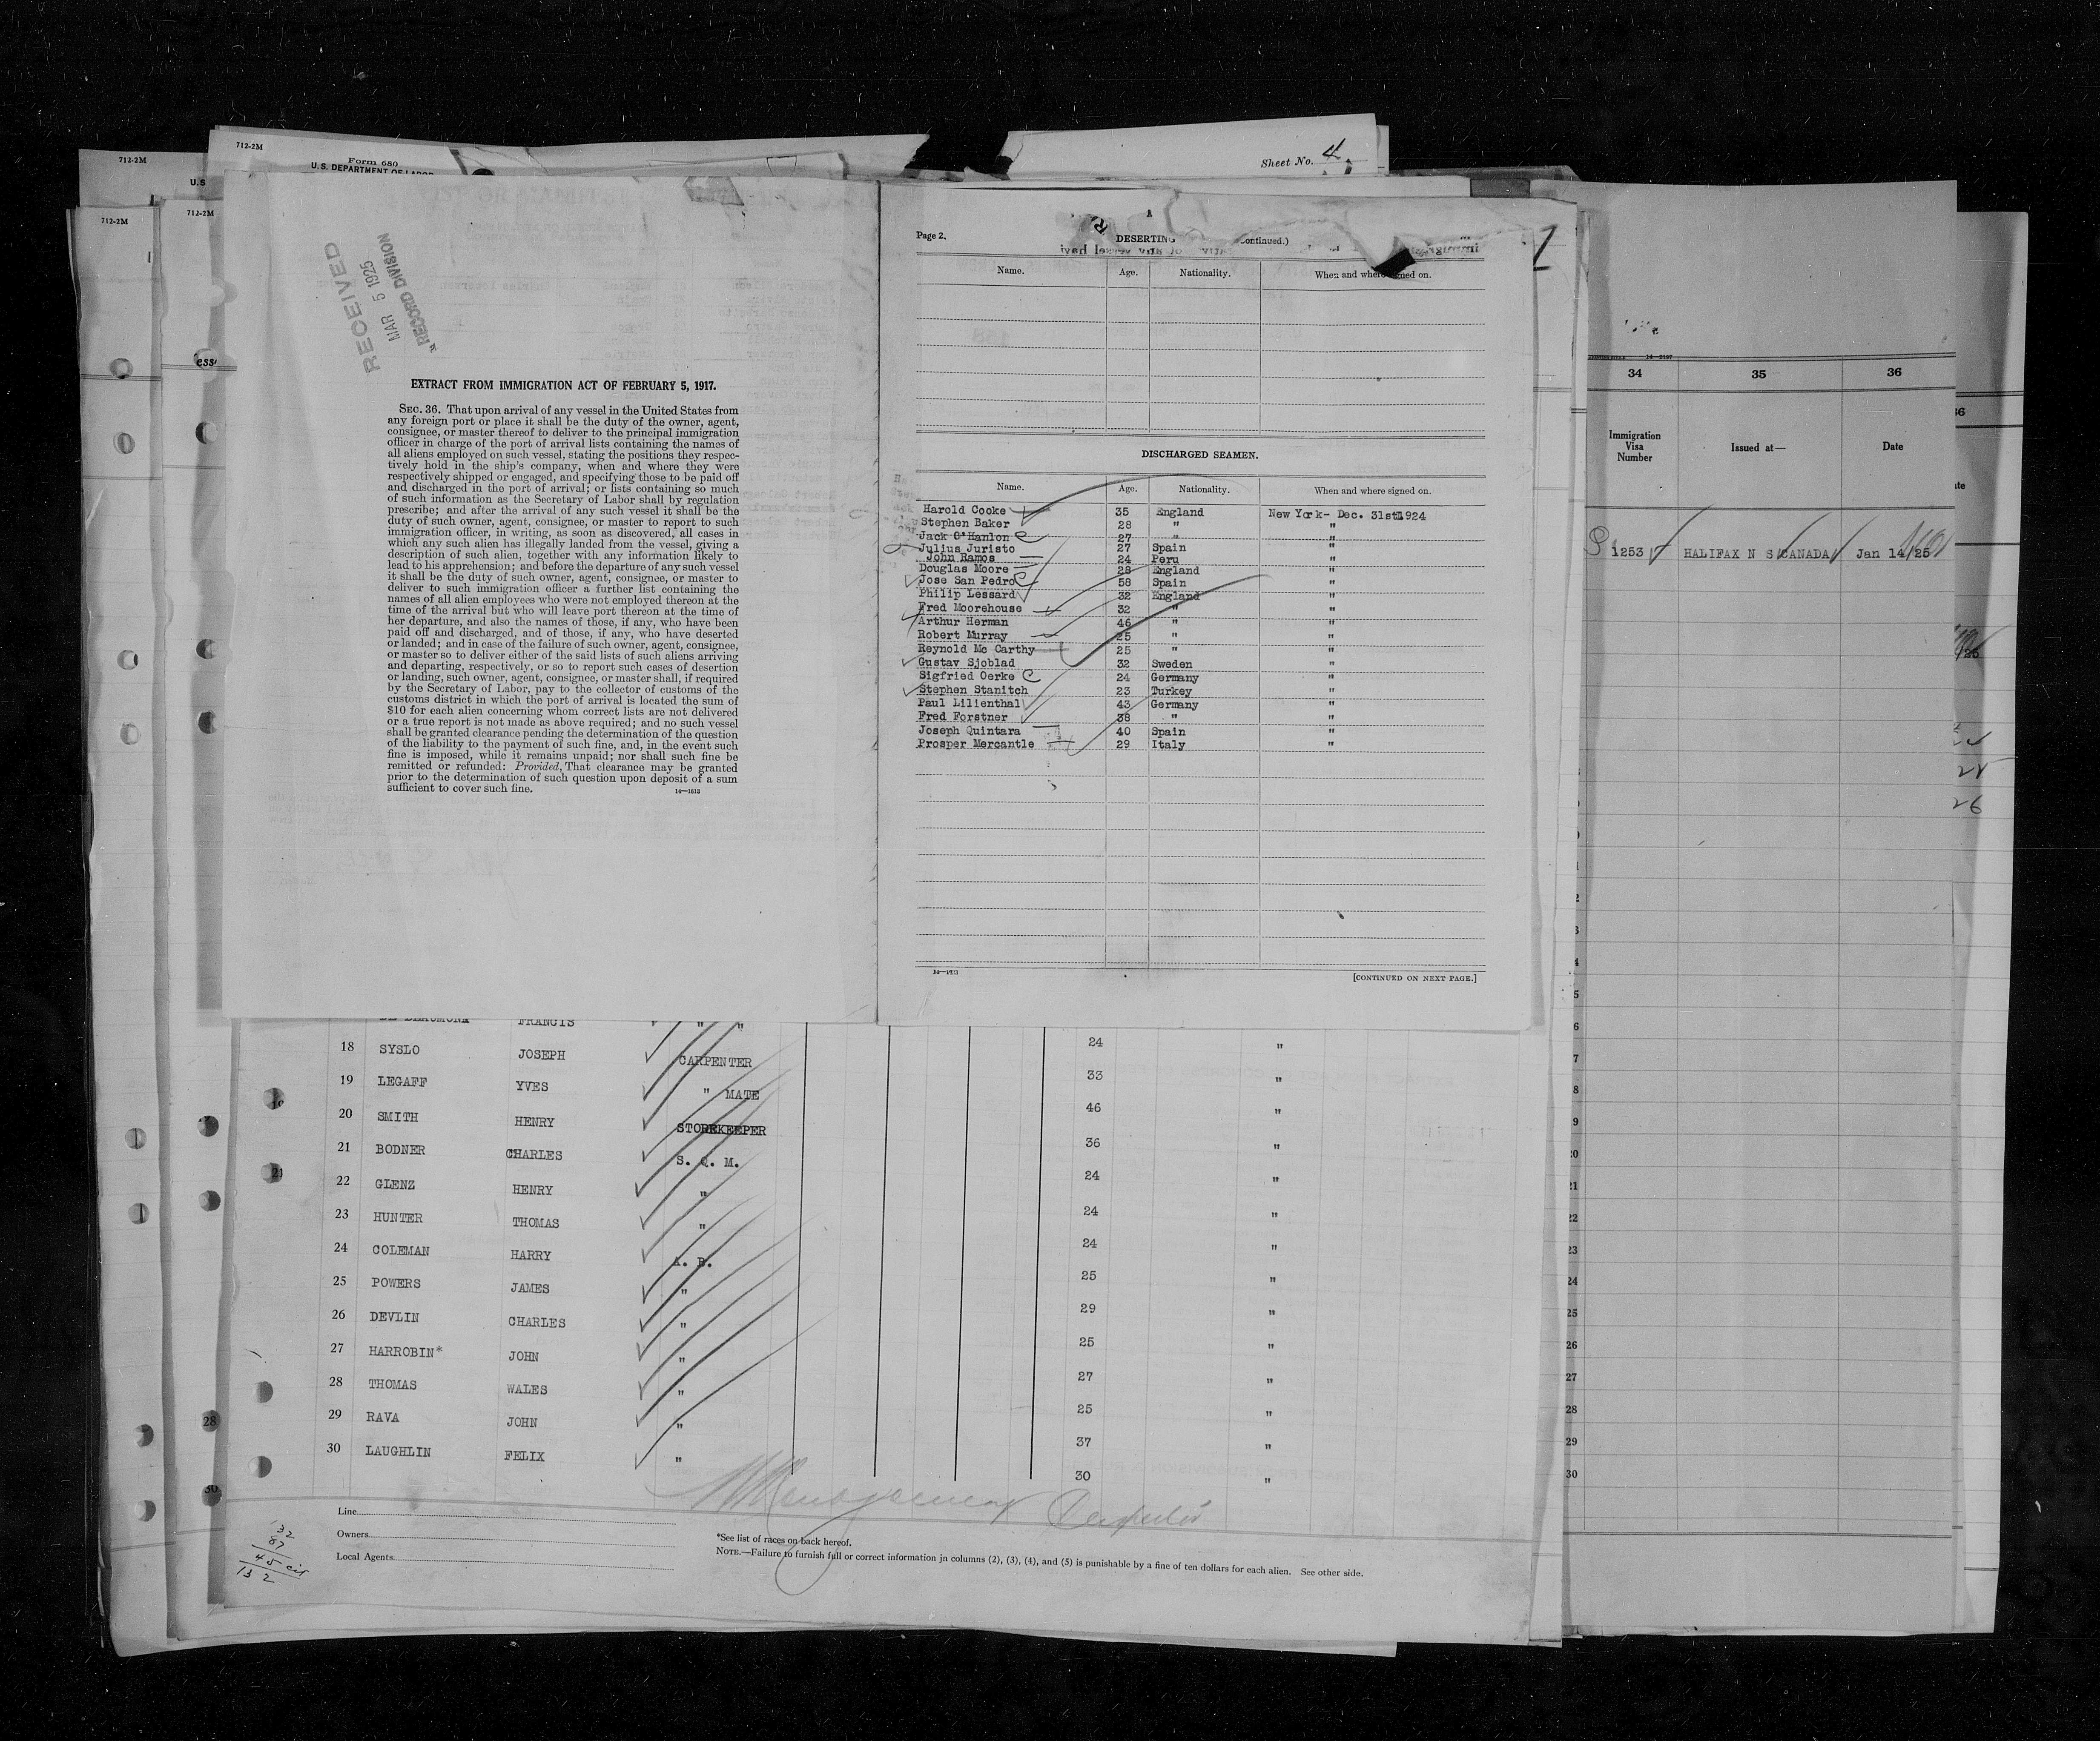 712-2M
712-2M
Form 680
U.S. DEPARTMENT OF LABOR
Sheet No. 4
U.S
712-2M
712-2M
RECEIVED
MAR 5 1925
RECORD DIVISION
EXTRACT FROM IMMIGRATION ACT OF FEBRUARY 5, 1917.
SEC. 36. That upon arrival of any vessel in the United States from
any foreign port or place it shall be the duty of the owner, agent,
consignee, or master thereof to deliver to the principal immigration
officer in charge of the port of arrival lists containing the names of
all aliens employed on such vessel, stating the positions they respec-
tively hold in the ship's company, when and where they were
respectively shipped or engaged, and specifying those to be paid off
and discharged in the port of arrival; or lists containing so much
of such information as the Secretary of Labor shall by regulation
prescribe; and after the arrival of any such vessel it shall be the
duty of such owner, agent, consignee, or master to report to such
immigration officer, in writing, as soon as discovered, all cases in
which any such alien has illegally landed from the vessel, giving a
description of such alien, together with any information likely to
lead to his apprehension; and before the departure of any such vessel
it shall be the duty of such owner, agent, consignee, or master to
deliver to such immigration officer a further list containing the
names of all alien employees who were not employed thereon at the
time of the arrival but who will leave port thereon at the time of
her departure, and also the names of those, if any, who have been
paid off and discharged, and of those, if any, who have deserted
or landed; and in case of the failure of such owner, agent, consignee,
or master so to deliver either of the said lists of such aliens arriving
and departing, respectively, or so to report such cases of desertion
or landing, such owner, agent, consignee, or master shall, if required
by the Secretary of Labor, pay to the collector of customs of the
customs district in which the port of arrival is located the sum of
$10 for each alien concerning whom correct lists are not delivered
or a true report is not made as above required; and no such vessel
shall be granted clearance pending the determination of the question
of the liability to the payment of such fine, and, in the event such
fine is imposed, while it remains unpaid; nor shall such fine be
remitted or refunded: Provided, That clearance may be granted
prior to the determination of such question upon deposit of a sum
sufficient to cover such fine. 14—1013
Page 2. DESERTING ontinued.)
Name. Age. Nationality. When and where signed on.
DISCHARGED SEAMEN.
Name. Age. Nationality. When and where signed on.
Harold Cooke 35 England New York- Dec. 31st1924
Stephen Baker 28 " "
Jack O'Hanlon 27 " "
Julius Juristo 27 Spain "
John Ramos 24 Peru "
Douglas Moore 28 England "
Jose San Pedro 58 Spain "
Philip Lessard 32 England "
Fred Moorehouse 32 " "
Arthur Herman 46 " "
Robert Murray 25 " "
Reynold Mc Carthy 25 " "
Gustav Sjoblad 32 Sweden "
Sigfried Oerke 24 Germany "
Stephen Stanitch 23 Turkey "
Paul Lilienthal 43 Germany "
Fred Forstner 38 " "
Joseph Quintara 40 Spain "
Prosper Mercantle 29 Italy "
[CONTINUED ON NEXT PAGE.]
34 35 36
Immigration Visa Number Issued at— Date
1253 HALIFAX N S CANADA Jan 14/25
26
FRANCIS " "
18 SYSLO JOSEPH CARPENTER 24 "
19 LEGAFF YVES " MATE 33 "
20 SMITH HENRY STOREKEEPER 46 "
21 BODNER CHARLES S. Q. M. 36 "
22 GLENZ HENRY " 24 "
23 HUNTER THOMAS " 24 "
24 COLEMAN HARRY A. B. 24 "
25 POWERS JAMES " 25 "
26 DEVLIN CHARLES " 29 "
27 HARROBIN* JOHN " 25 "
28 THOMAS WALES " 27 "
29 RAVA JOHN " 25 "
30 LAUGHLIN FELIX " 37 "
30 "
5
6
7
8
9
20
21
22
23
24
25
26
27
28
29
30
28
30
Line
Owners
Local Agents
*See list of races on back hereof.
NOTE.—Failure to furnish full or correct information in columns (2), (3), (4), and (5) is punishable by a fine of ten dollars for each alien. See other side.
32
87
45
132